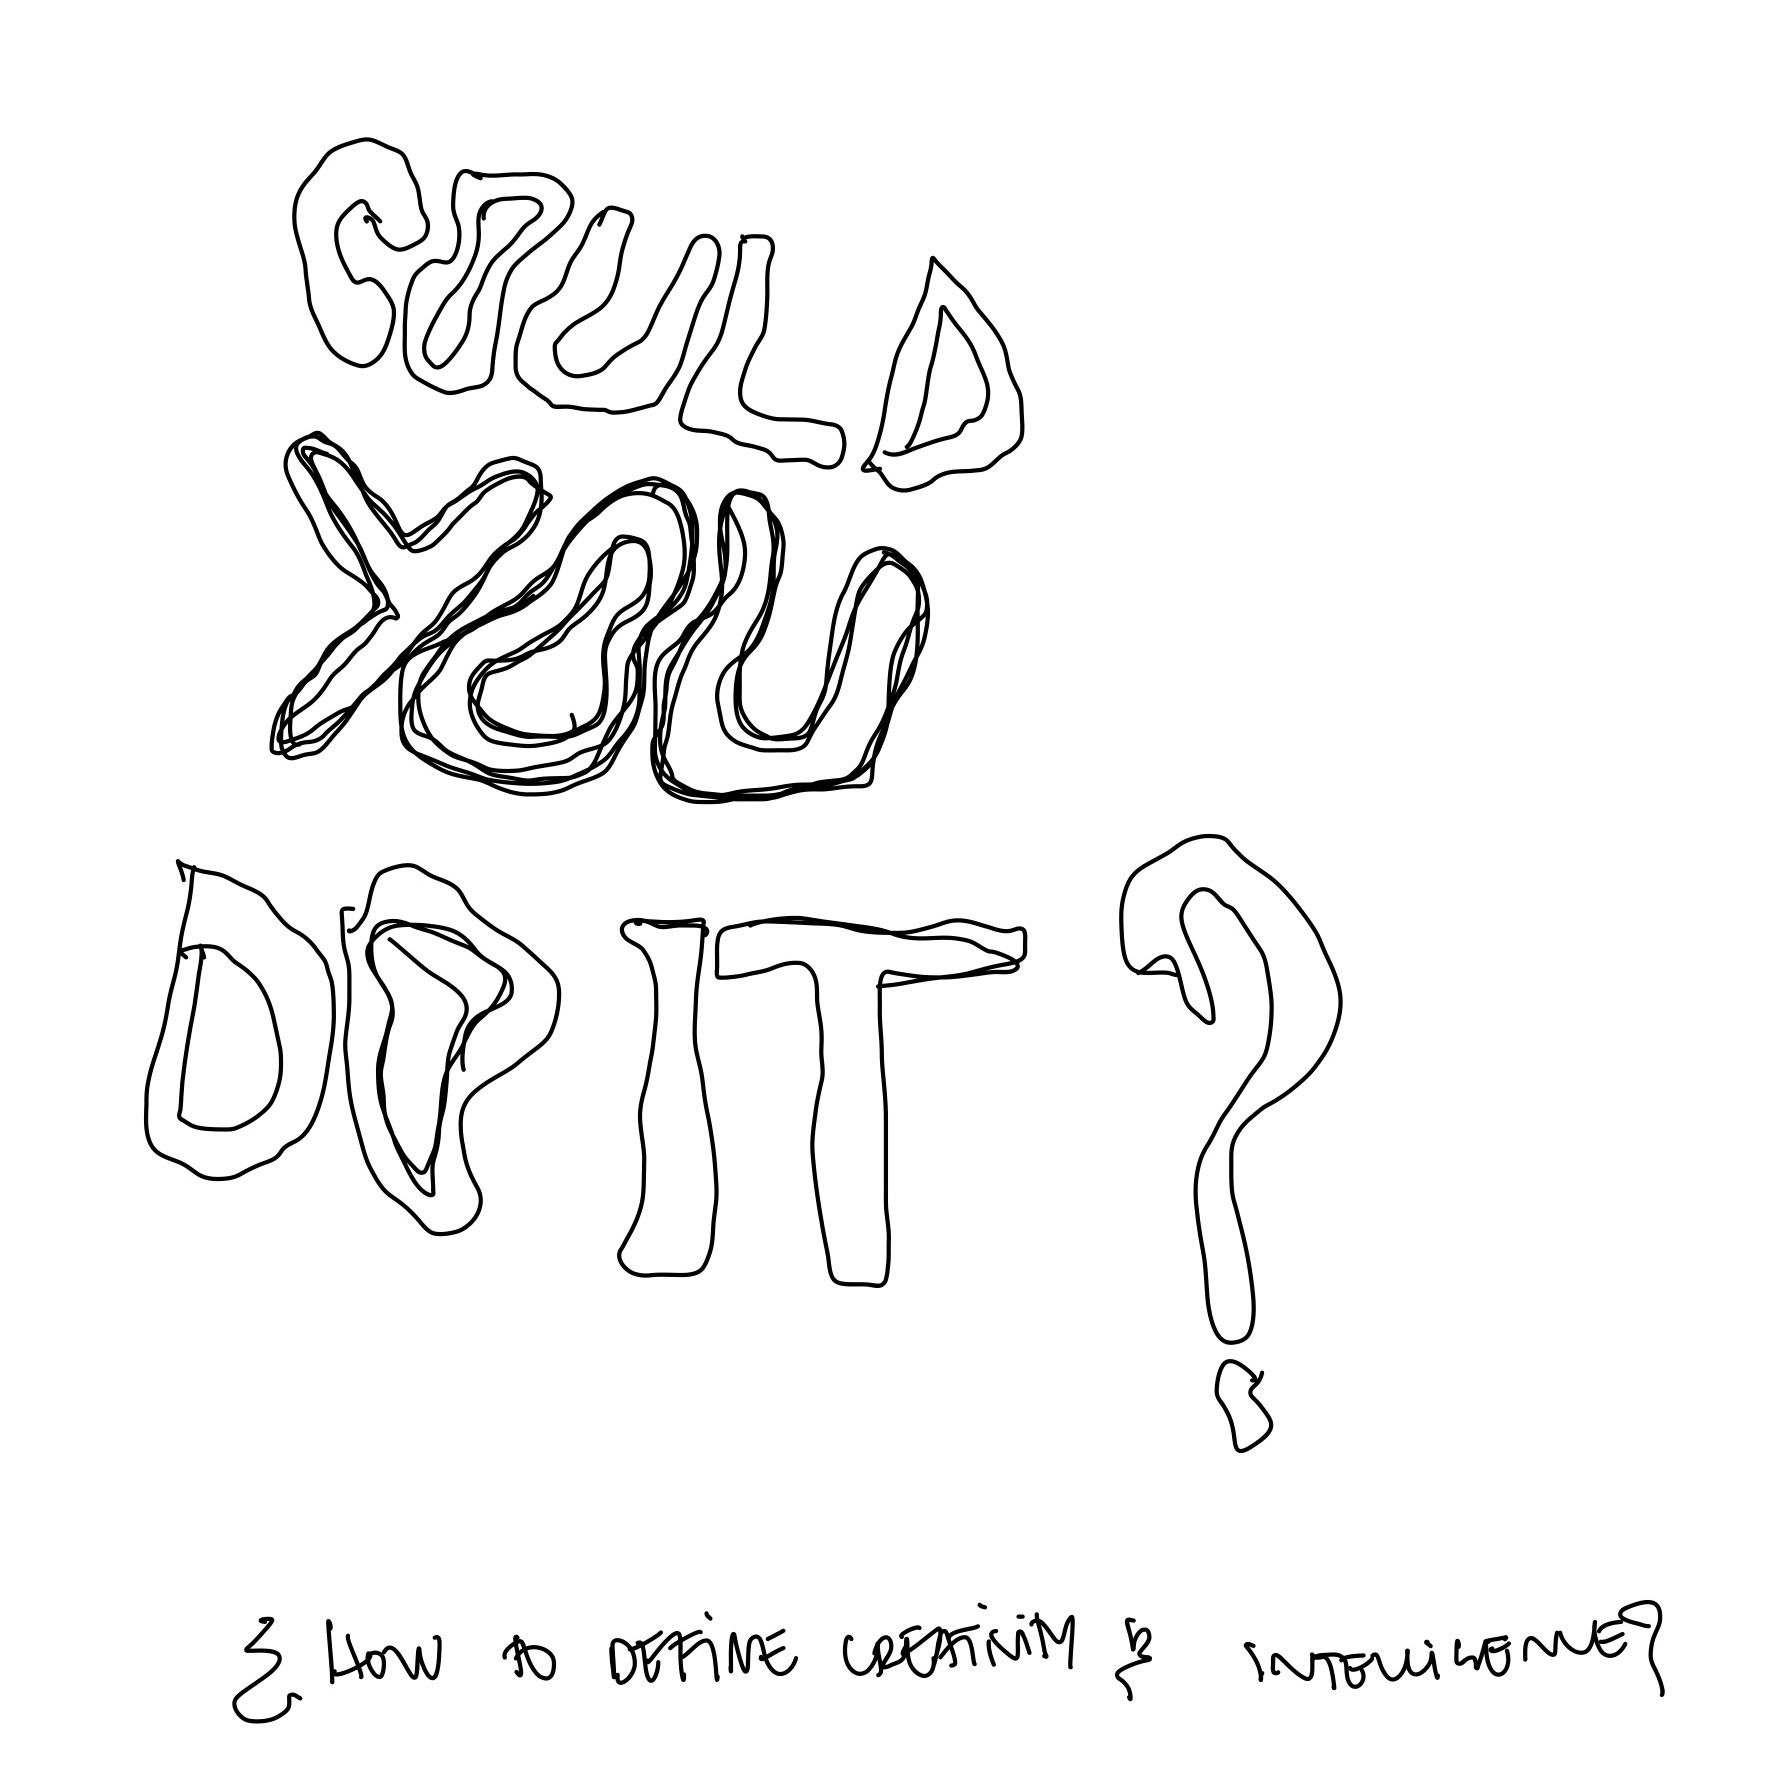 COULD
YOU
DO IT?
¿ HOW TO DEFINE CREATIVITY & INTELLIGENCE?